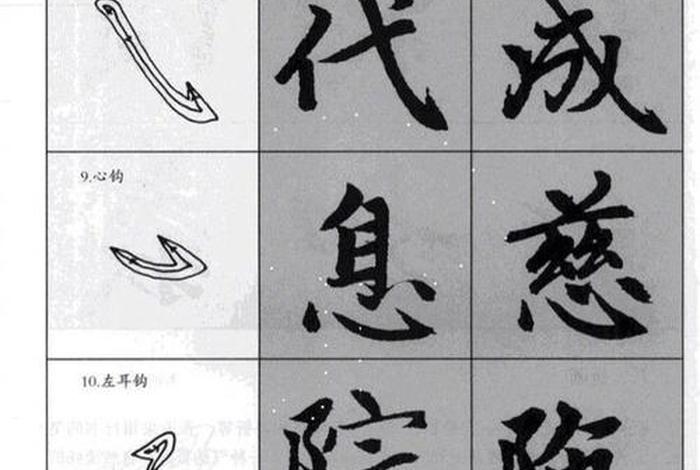 代 成
9.心钩
息 慈
10.左耳钩
院